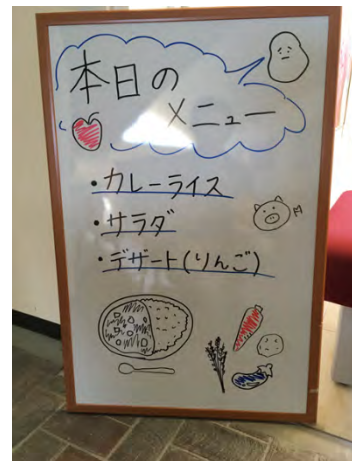 本日の
メニュー
・カレーライス
・サラダ
・デザート(りんご)